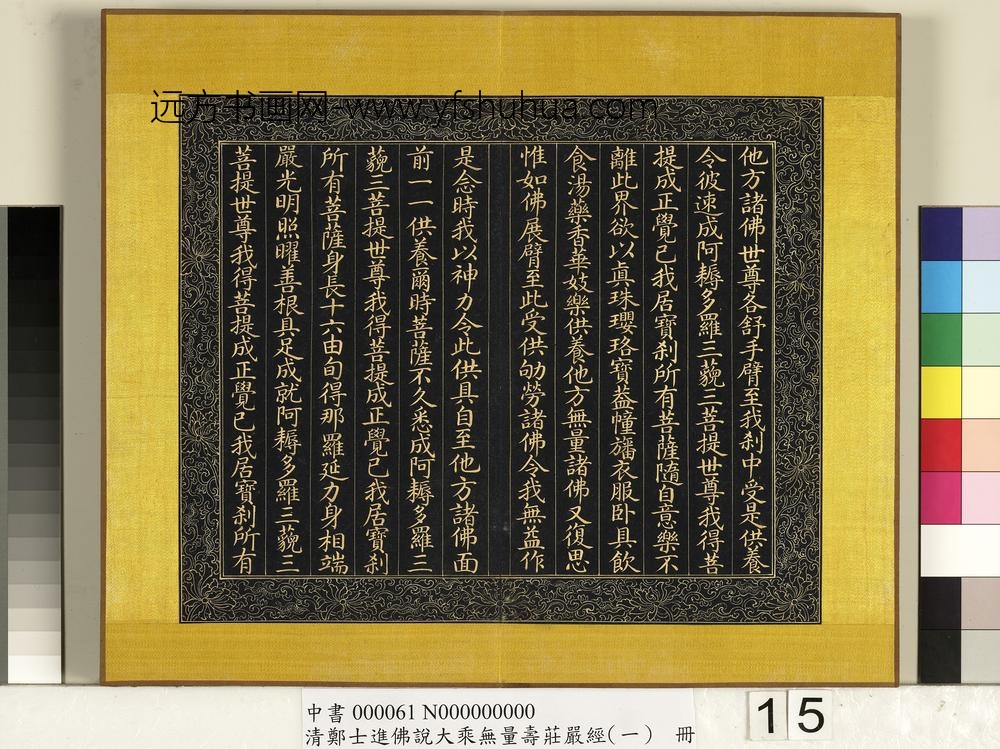 远方书画网-www.yfshuhua.com
他方諸佛世尊各舒手臂至我刹中受是供養
令彼速成阿耨多羅三藐三菩提世尊我得菩
提成正覺已我居寶刹所有菩薩隨自意樂不
離此界欲以真珠瓔珞寶蓋幢旛衣服卧具飲
食湯藥香華妓樂供養他方無量諸佛又復思
惟如佛展臂至此受供劬勞諸佛令我無益作
是念時我以神力令此供具自至他方諸佛面
前一一供養爾時菩薩不久悉成阿耨多羅三
藐三菩提世尊我得菩提成正覺已我居寶刹
所有菩薩身長十六由旬得那羅延力身相端
嚴光明照曜善根具足成就阿耨多羅三藐三
菩提世尊我得菩提成正覺已我居寶刹所有
中書 000061 N000000000
清鄭士進佛說大乘無量壽莊嚴經(一) 冊
15